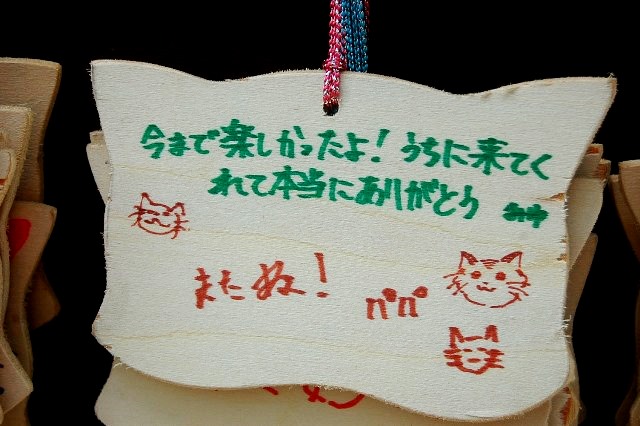 今まで楽しかったよ！うちに来てく
れて本当にありがとう
またね！